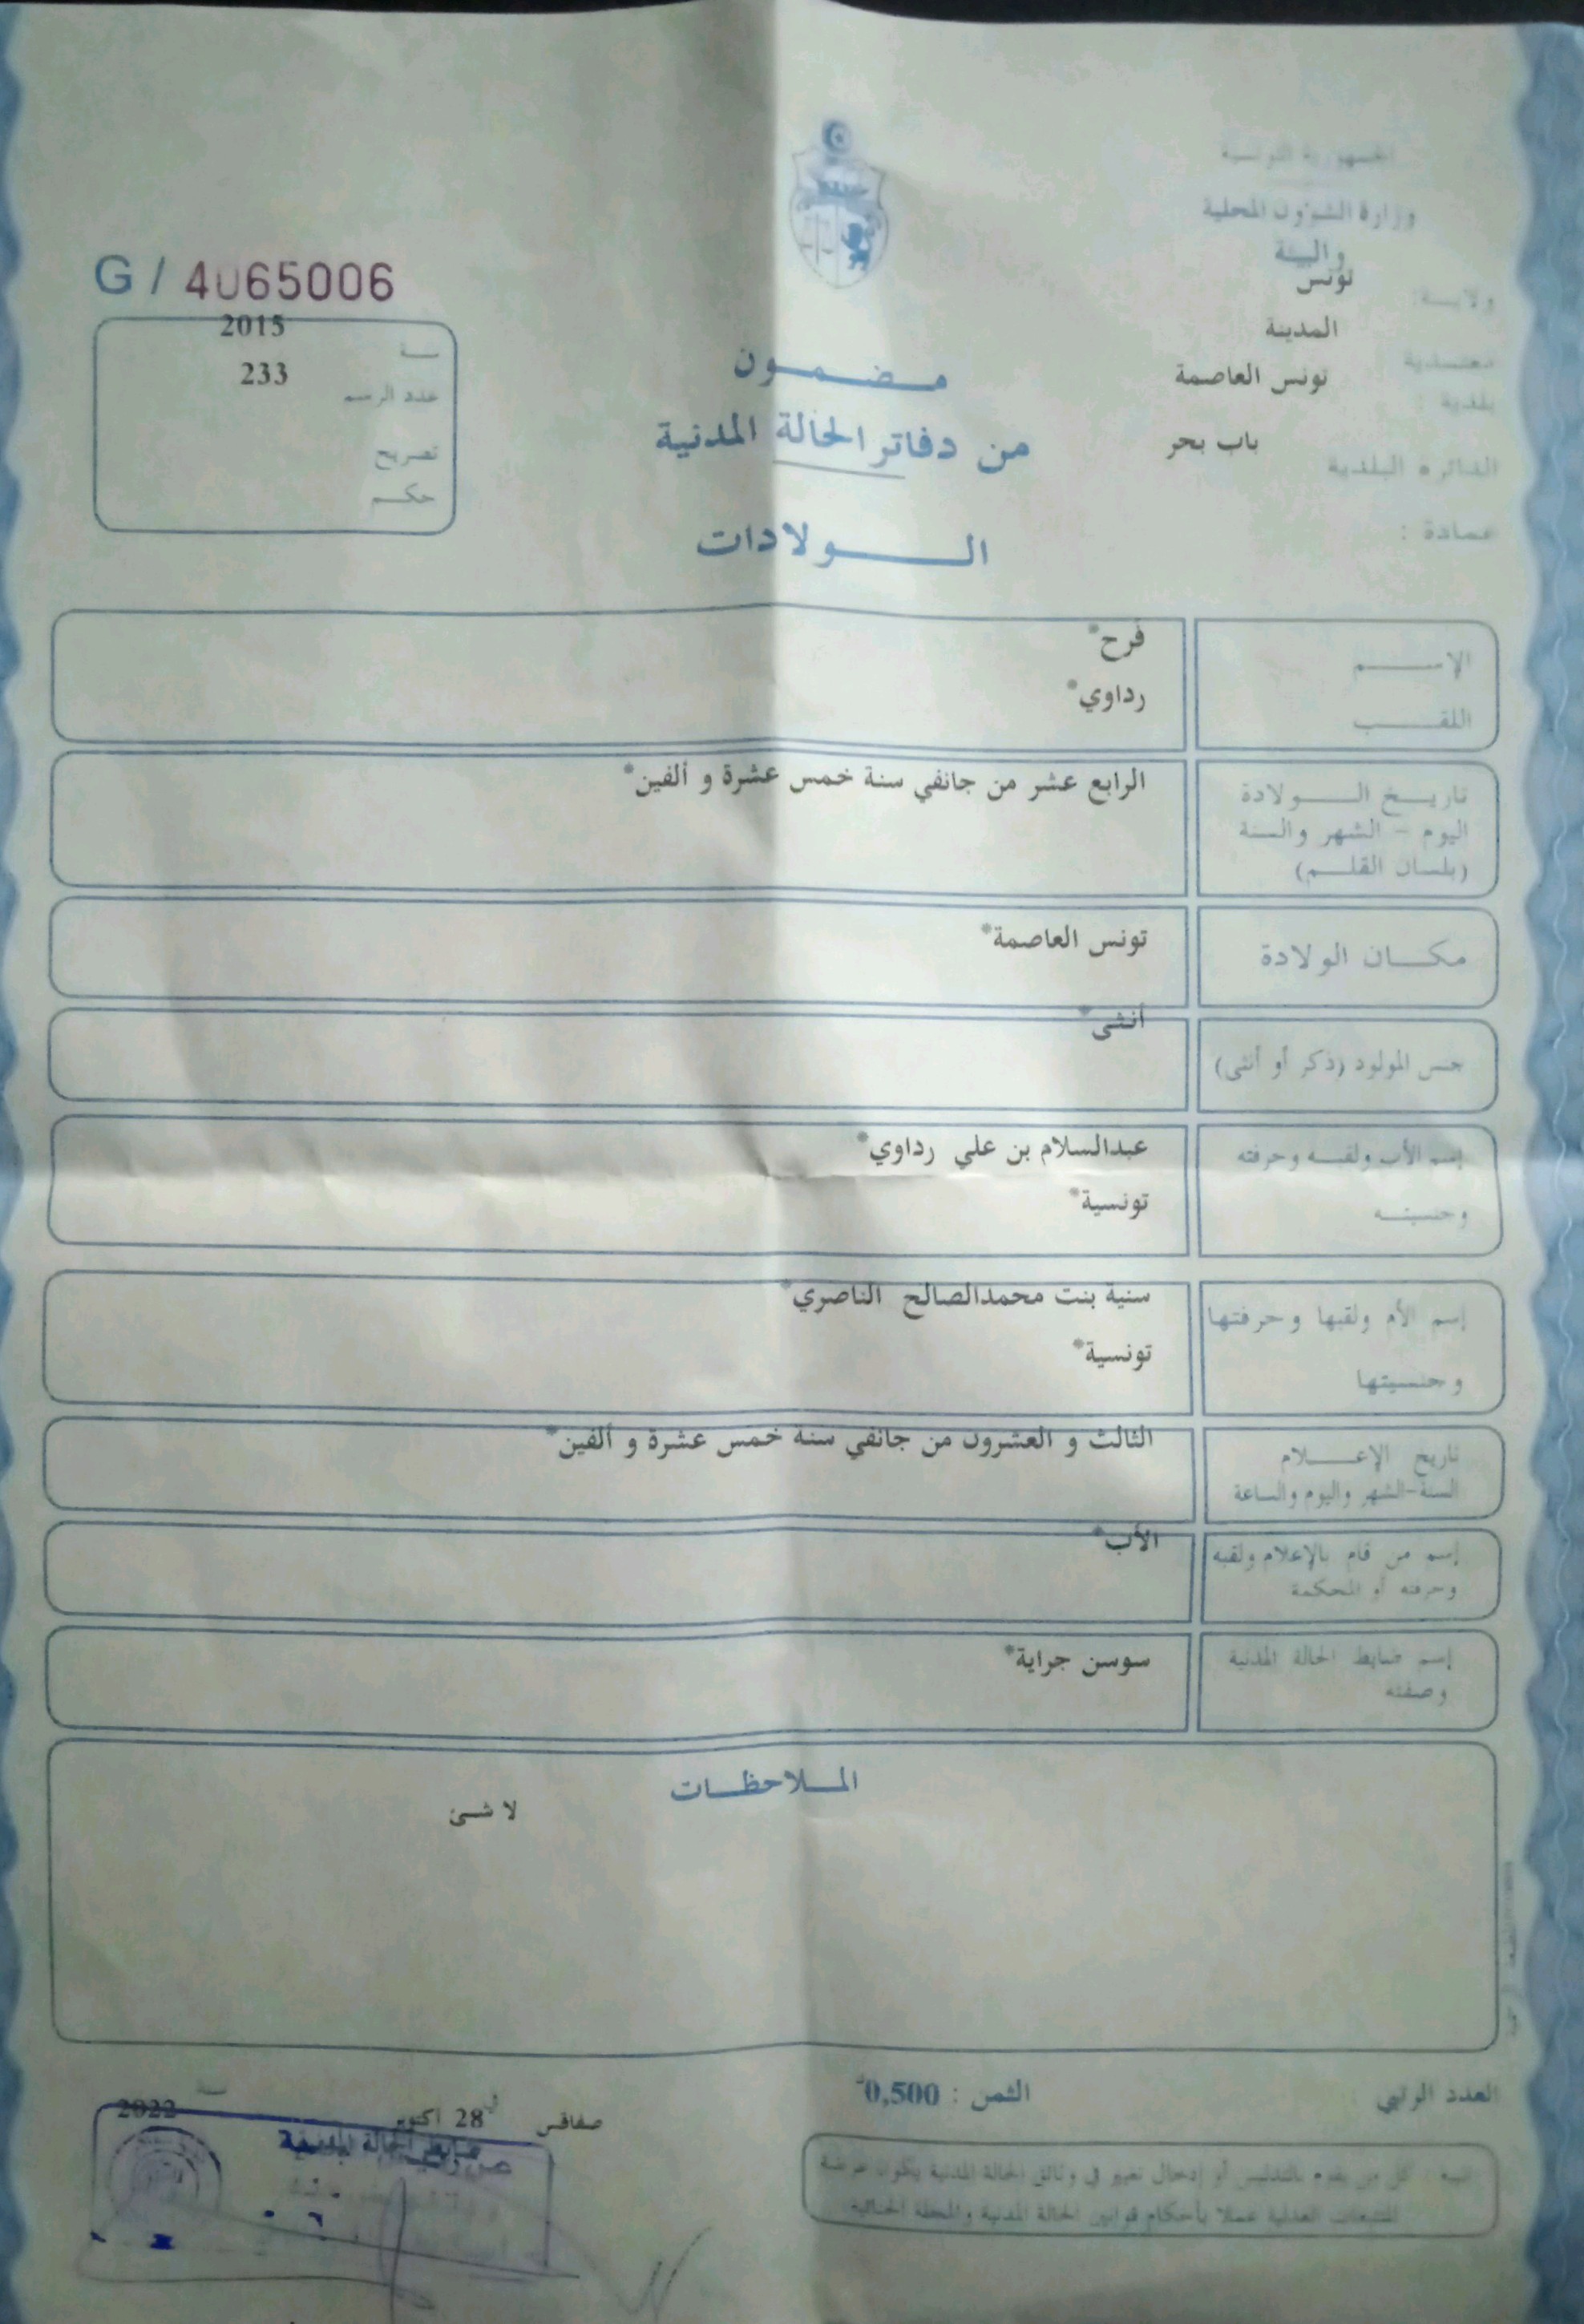 الجمهورية التونسية
وزارة الشؤون المحلية
والبيئة
ولاية: تونس
معتمدية المدينة
بلدية : تونس العاصمة
الدائرة البلدية باب بحر
عمادة :
G / 4065006
سنة 2015
عدد الرسم 233
تصريح
حكم
مضمون
من دفاتر الحالة المدنية
الولادات
الإسم فرح*
اللقب رداوي*
تاريخ الولادة الرابع عشر من جانفي سنة خمس عشرة و ألفين*
اليوم - الشهر والسنة
(بلسان القلم)
مكان الولادة تونس العاصمة*
جنس المولود (ذكر أو أنثى) أنثى*
إسم الأب ولقبه وحرفته عبدالسلام بن علي رداوي*
وجنسيته تونسية*
إسم الأم ولقبها وحرفتها سنية بنت محمدالصالح الناصري*
وجنسيتها تونسية*
تاريخ الإعلام الثالث و العشرون من جانفي سنة خمس عشرة و ألفين*
السنة-الشهر واليوم والساعة
إسم من قام بالإعلام ولقبه الأب*
وحرفته أو المحكمة
إسم ضابط الحالة المدنية سوسن جراية*
وصفته
الملاحظات
لا شئ
العدد الرتبي الثمن : 0,500د
صفاقس في 28 اكتوبر سنة 2022
ضابط الحالة المدنية
تنبيه : كل من يقوم بالتدليس أو إدخال تغيير في وثائق الحالة المدنية يكون عرضة
للتتبعات العدلية عملا بأحكام قوانين الحالة المدنية والمجلة الجنائية